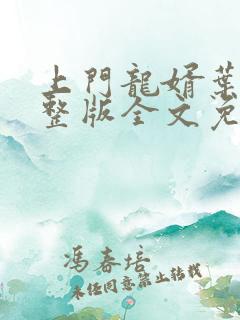 上門龍婿葉
整版全文免
馮春培
未経同意禁止转载